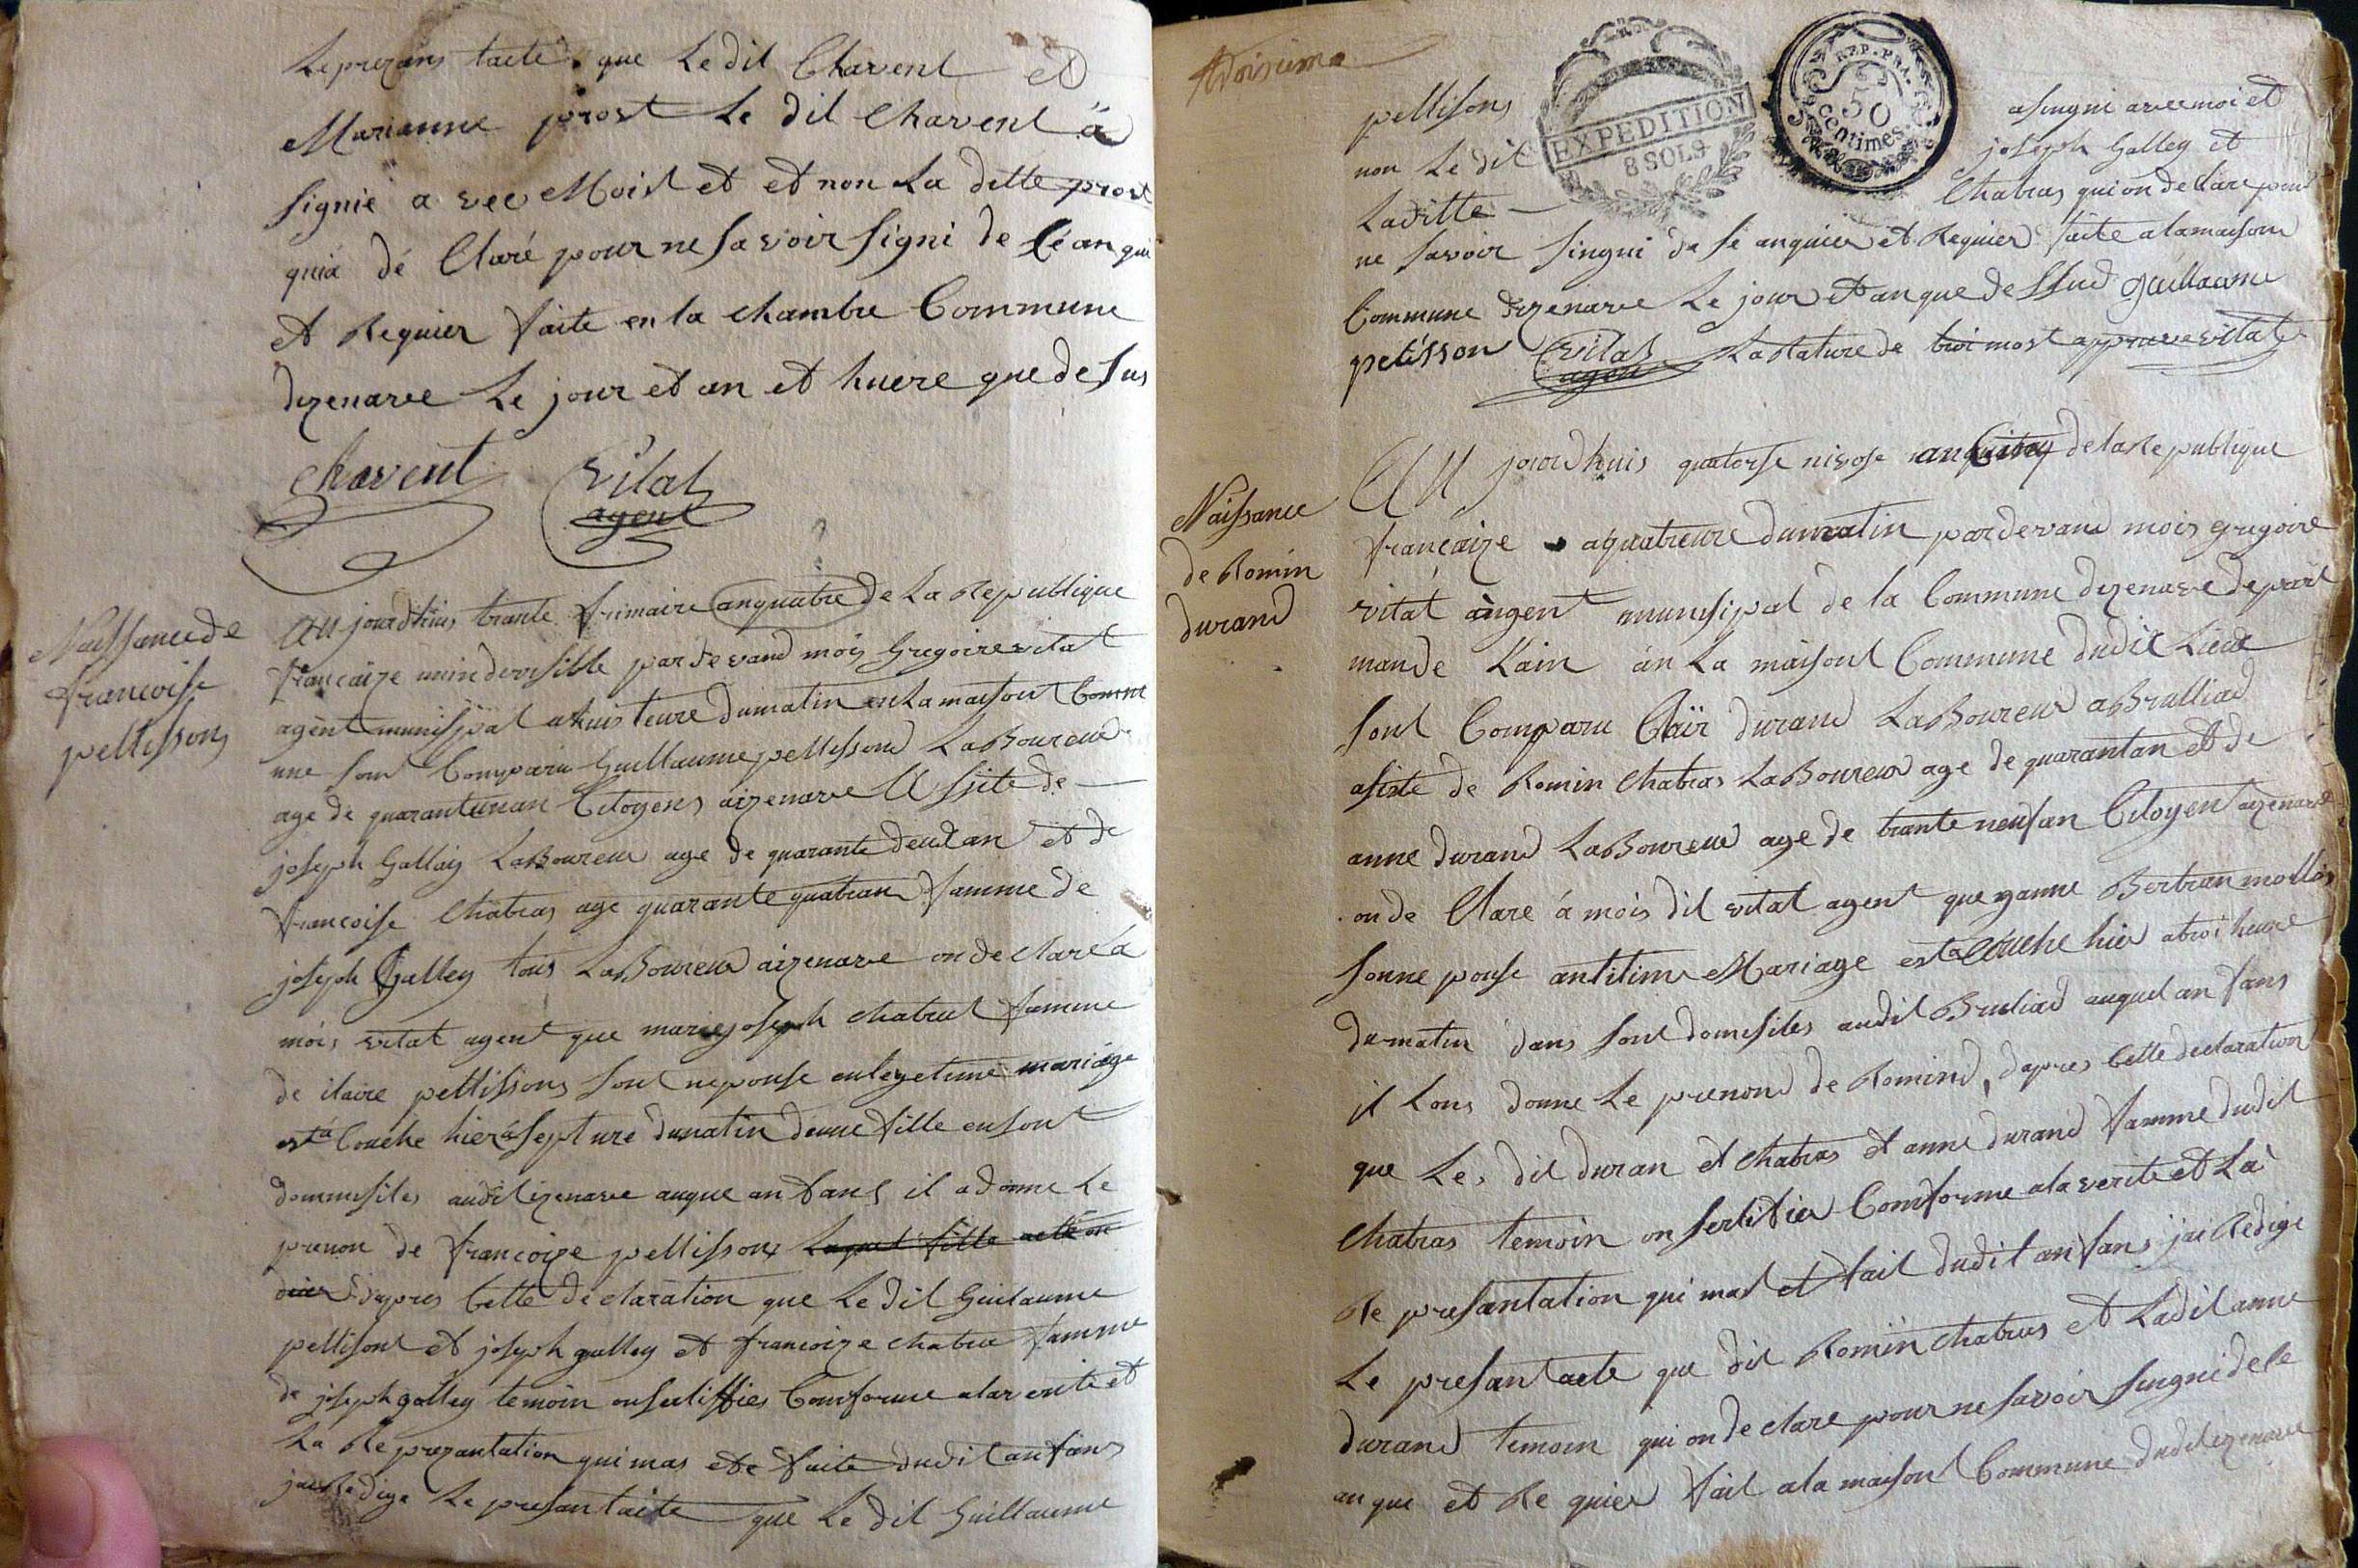 Le prezans tacte que Ledit Chavent et
Marianne prost Le dit Chavent a
signie a vec Moist et et non La ditte prost
quia dé Claré pour ne savoir signi de ce anqui
et Requier faite en la chambre Commune
dizenave Le jour et an et huere que desus
Chavent Vital
agent
Naissance de
francoise
pellissons
Au jourdhuis trante frimaire anquatre de La République
francaize unindivisible pardevand mois Gregoire vital
agent munisipal a huis teure dumatin en La maisont Comm
une sont Comparu Guillaume pellissond LaBoureur
age de quarantunan Citoyens aizenave Assite de
joseph Galley LaBoureur age de quarante deux an et de
francoise Chatras age quarante quatran famme de
joseph Galley tous LaBoureur aizenave on de claré a
mois vital agent que marie joseph chatrat famme
de claire pellissons sont nepouse en legetime mariage
esta Couche hier a sept ure dumatin deune fille en sont
dommisiles audit izenave auque anfans il a donne Le
prenon de francoize pellissons Laquel fille
dapres Cette declaration que Le dit Guilaume
pellisont et joseph galley et francoize chatra famme
de joseph galley temoin on sertiffies Comforme alaverite et
La Reprezantation qui mas ete faite dudit anfans
jai Redige Le presantacte que Le dit Guillaume
troisieme
pellisons asingni avec moi et
non Le dit joseph Galley et
Laditte Chatras qui on declare pour
EXPEDITION
8 SOLS
REP. FRA.
50
centimes
ne savoir singni de se anquier et Requier faite a la maison
Commune dizenave Le jour et an que dessus guillaume
pelisson Vital La Rature de troi most approuve vital
agent
Naissance
de Romin
durand
Au jourdhuis quatorse nivose an de la Republique
francaize a quatreure dumatin pardevand mois gregoire
vital angent munisipal de la Commune dizenave depart
mande Lain an La maisont Commune dudit Lieux
sont Comparu Clair durand LaBoureur a Brulliad
asiste de Romin chatras LaBoureur age de quarantan et de
anne durand LaBoureur age de trante neufan Citoyent aizenave
on de Claré a mois dit vital agent que yanne Bertran mollis
sonne pouse antitime Mariage esta Couche hier a troi heure
du matin dans sont domisiles audit Bruliad auquel anfans
il Lons donne Le prenond de Romind, dapres Cette declaration
que Les dit duran et chatras et anne durand famme dudit
chatras temoin on sertifier Comforme alaverite et La
Re presantation qui mat et fait dudit anfans jai Redige
Le presant acte que dit Romin chatras et Ladit anne
durand temoin qui on de clare pour ne savoir singni de le
an que et Re quier fait ala maisont Commune dudit izenave